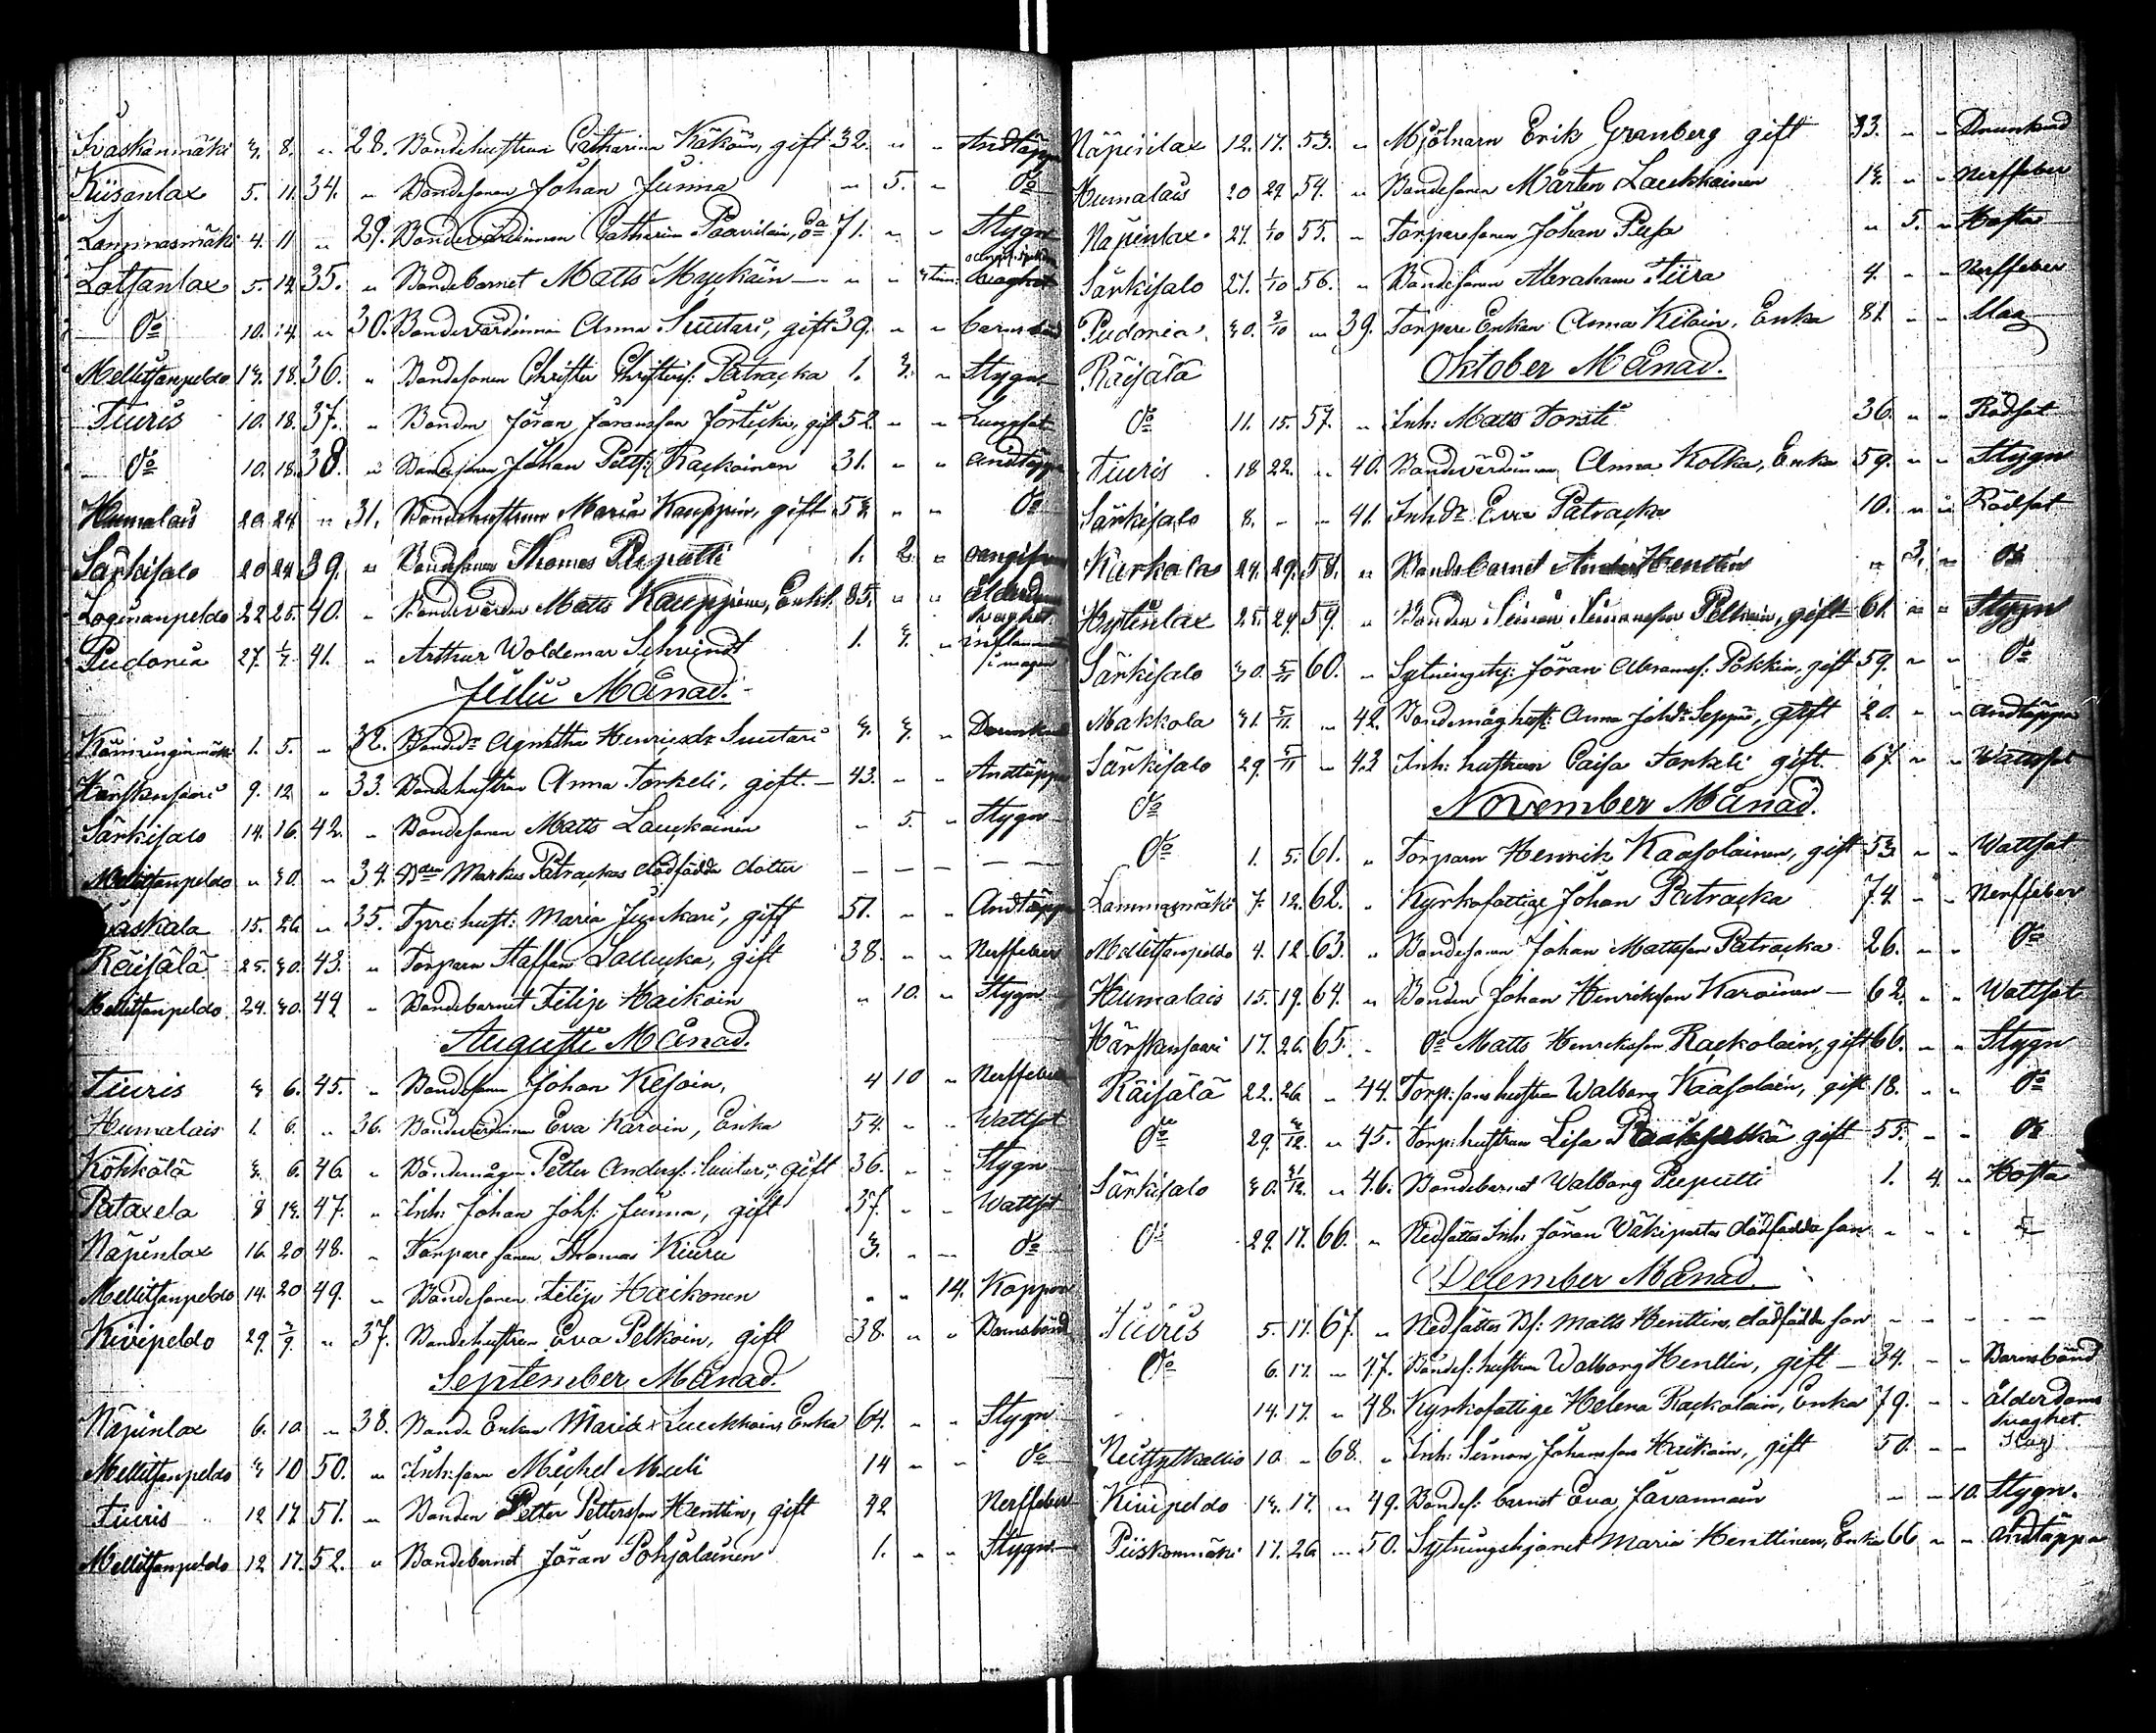 Ivaskanmäki 3. 8. " 28. Bondehustrun Catharina Käköin, gift 32. " " Andtäppa
Kiisanlax 5. 11. 34. " Bondesonen Johan Junna " 5. " Do
Lammasmäki 4. 11 " 29. Bondevärdinnan Catharina Paavilain, Da 71. " " Stygn
Lotsanlax 5. 14 35. " Bondebarnet Matts Myckäin " " 3 tim:
Do 10. 14. " 30. Bondevärdinnan Anna Suutari, gift 39. " " barnsbörd
Mellitsanpeldo 13. 18. 36. " Bondesonen Christer Christersf: Patracka 1. 3. " Stygn
Tiuris 10. 18. 37. " Bonden Jöran Jöransson gift 52. " " Lungsot
Do 10. 18. 38. " Bondesonen Johan Petts: Rackoinen 31. " " andtäppa
Humalais 20. 24 " 31. Bondehustrun Maria Kauppin, gift 53 " " Do
Särkisalo 20 24 39. " Bondesonen Thomas Pieputti 1. 2. " oangifven
Loginanpeldo 22 25. 40. " Bondevärden Matts Kauppinen, Enkl. 85. " " ålderdoms
svaghet.
Pudoria 27. 1/7 41. " Arthur Woldemar Schvindt 1. 3. " inflammation
i magen
Julii Månad.
1. 5. " 32. Bonded:r Agnetha Henricsd:r Suutari 3. 3. " Drunknad
Härskensaari 9. 12 " 33. Bondehustrun Anna Torkeli, gift. 43. " " Andtäppa
Särkisalo 14. 16. 42. " Bondesonen Matts Lauckainen " 5. " Stygn
Mellitsanpeldo " 30. " 34. Markus Patrackas dödfödda dotter
15. 26 " 35. hust: Maria Junkari, gift 51. " " Andtäppa
Räisälä 25. 30. 43. " Torparn Staffan gift 38. " " Nerffeber
Mellitsanpeldo 24. 30. 44 " Bondebarnet Filip Haikoin " 10. " Stygn
Augusti Månad.
Tiuris 3 6. 45. " Bondesonen Johan Kesoin, 4 10 " Nerffeber
Humalais 1. 6. " 36. Bondevärdinnan Eva Karoin, Enka 54. " " Wattsot
Kökkölä 3. 6. 46 " Bondemågen Petter Andersf: Suutari, gift 36. " " Stygn
Pataxela 8 13. 47. " Inh: Johan Johsf: Junna, gift 37. " " Wattsot
Näpinlax 16. 20 48. " Torparesonen Thomas Kiuru 3. " Do
Mellitsanpeldo 14. 20 49. " Bondesonen Filip Haikonen " " 14. Koppor
Kivipeldo 29. 3/9. " 37. Bondehustrun Eva Pelkoin, gift 38. " " Barnsbörd
September Månad.
Näpinlax 6. 10 " 38. Bonde Enkan Maria Luukkoin, Enka 64. " " Stygn
Mellitsanpeldo 3 10 50. " Inh: son Michel Muli 14 " " Do
Tiuris 12 17 51. " Bonden Petter Pettersson Henttin, gift 42 Nerffeber
Mellitsanpeldo 12 17. 52. " Bondebarnet Jöran Pohjolainen 1. " " Stygn
Näpinlax 12. 17. 53. " Mjölnarn Erik Granberg gift 33. " " Drunknad
Humalais 20 24 54. " Bondesonen Mårten Laukkainen 13. " " Nerffeber
Näpinlax 27. 1/10 55. " Torparesonen Johan Pusa " 5. " Hosta
Särkisalo 27. 1/10 56. " Bondesonen Abraham Tiira 4. " " Nerffeber
Pudoria 30. 2/10 " 39. Torpare Enkan Anna Kiloin, Enka 81. " " Slag
Räisälä Oktober Månad.
Do 11. 15. 57. " Inh: Matts Torsti 36. " " Rödsot
Tiuris 18 22. " 40. Bondevärdinnan Anna Kolka, Enka 59. " " Stygn
Särkisalo 8. " " 41. Inh.d:r Eva Patracka 10. " " Rödsot
Kurkola 24. 29. 58. " Bondebarnet Anders Henttin " 3. " Do
Hytinlax 25. 29. 59. " Bonden Simon Simonsson Peltoin, gift 61. " " Stygn
Särkisalo 30. 5/11 60. " Sytningshj: Jöran Abramsf: Pökkin, gift 59. " " Do
Makkola 31. 5/11. " 42. Bondemåghust: Anna Johd:r Seppä, gift 20. " " andtäppa
Särkisalo 29. 5/11 " 43 Inh: hustrun Caisa Torkeli gift. 67. " " Wattsot
Do November Månad.
Do 1. 5. 61. " Torparn Henrik Kaasolainen, gift 53 " " Wattsot
Lammasmäki 7. 12. 62. " Kyrkofattige Johan Patracka 74. " " Nerffeber
Mellitsanpeldo 4. 12. 63. " Bondesonen Johan Mattsson Patracka 26. " " Do
Humalais 15. 19. 64. " Bonden Johan Henriksson Karoinen 62. " " Wattsot
Härskensaari 17. 26. 65. " Do Matts Henriksson Rackolain, gift 66. " " Stygn
Räisälä 22. 26 " 44. Torp:sons hustru Walborg Kaasolain, gift 18. " " Do
Do 29. 3/12. " 45. Torp: hustrun Lisa gift 55. " " Do
Särkisalo 30. " 46. Bondebarnet Walborg Pieputti 1. 4. " Hosta
Do 29. 17. 66. " Nedsattes Inh: Jöran Väkipartas dödfödda son " " "
December Månad.
Tiuris 5. 17. 67. " Nedsattes Bf: Matts Henttins dödfödda son
Do 6. 17. " 47. Bondes: hustrun Walborg Henttin, gift 34. " " Barnsbörd
14. 17. " 48. Kyrkofattige Helena Rackolain, Enka 79. " " ålderdoms
svaghet.
10. " 68. " Inh: Simon Johansson Haikoin, gift 50. " " Slag
Kivipeldo 13. 17. " 49. Bondes: barnet Eva Javannain " " 10. Stygn.
Piiskonmäki 17. 26 " 50. Sytningshjonet Maria Henttinen, Enka 66 " " andtäppa